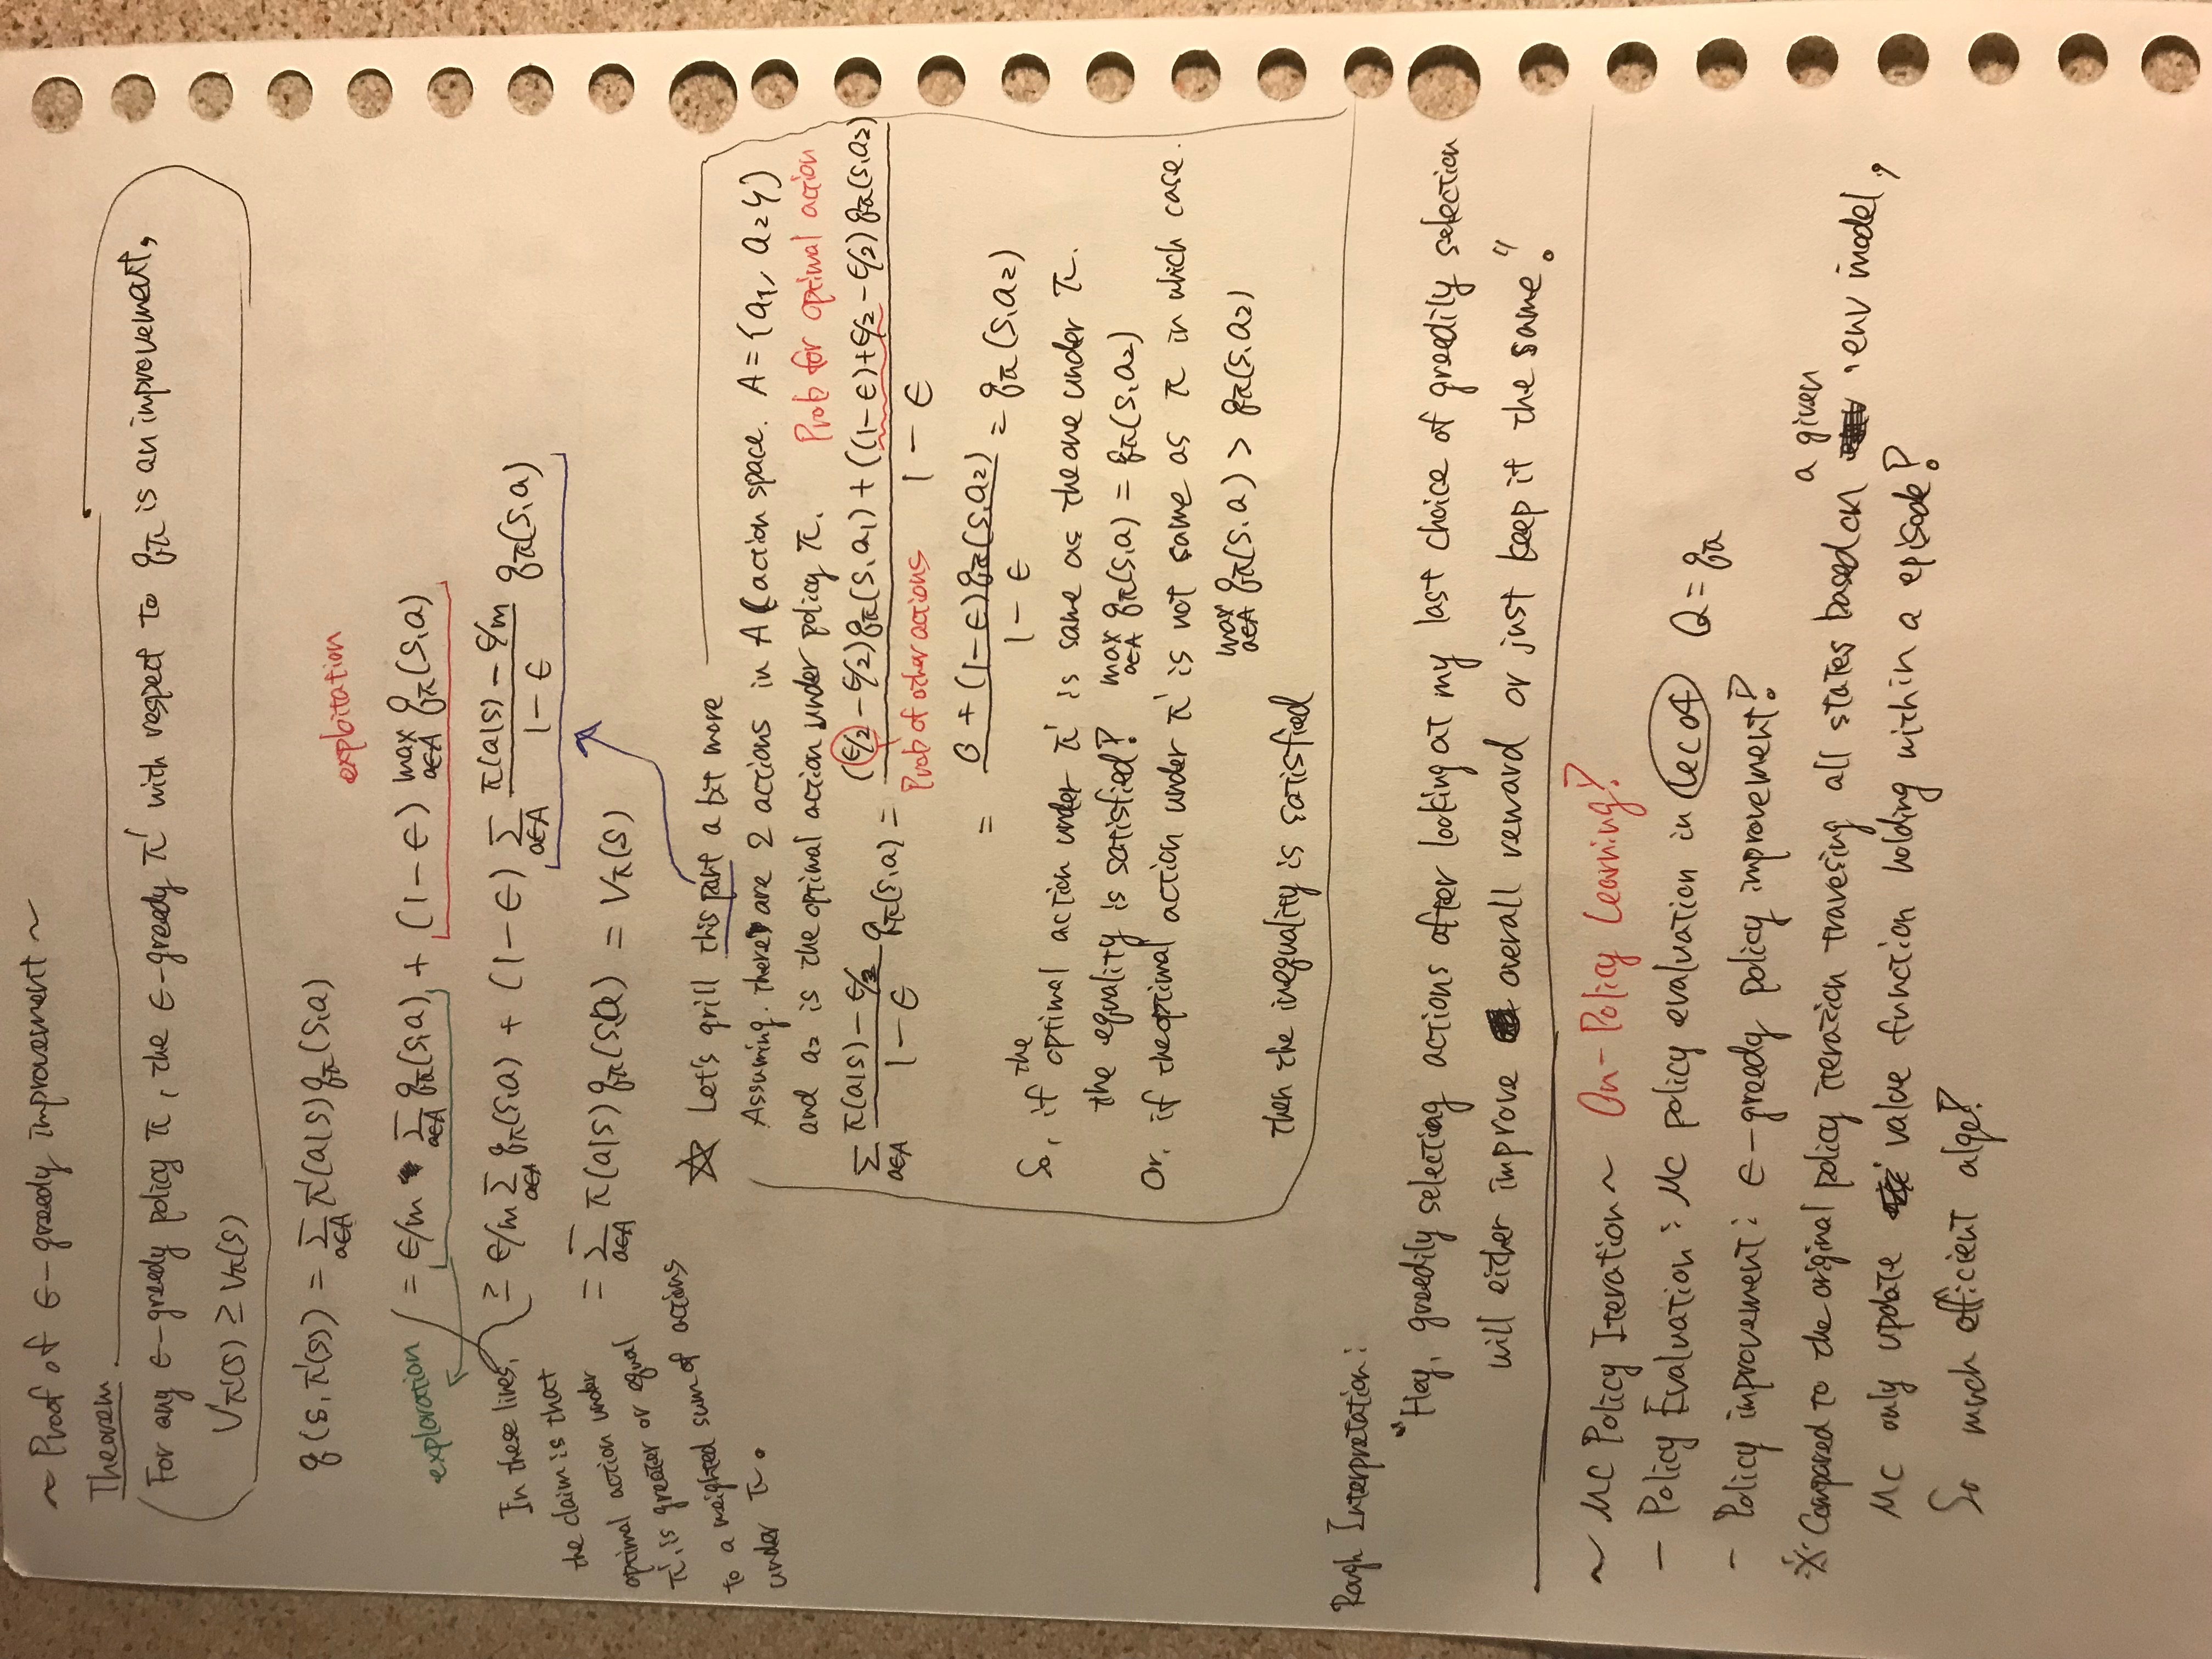 ~ Proof of ϵ-greedy improvement ~
Theorem
For any ϵ-greedy policy π, the ϵ-greedy π' with respect to qπ is an improvement,
Vπ'(s) ≥ Vπ(s)
q(s, π'(s)) = Σ_{a∈A} π'(a|s) qπ(s,a)
exploitation
exploration
= ϵ/m Σ_{a∈A} qπ(s,a) + (1-ϵ) max_{a∈A} qπ(s,a)
≥ ϵ/m Σ_{a∈A} qπ(s,a) + (1-ϵ) Σ_{a∈A} (π(a|s) - ϵ/m)/(1-ϵ) qπ(s,a)
= Σ_{a∈A} π(a|s) qπ(s,a) = Vπ(s)
In these lines,
the claim is that
optimal action under
π', is greater or equal
to a weighted sum of actions
under π.
☆ Let's grill this part a bit more
Assuming. there are 2 actions in A (action space. A = {a1, a2})
and a2 is the optimal action under policy π.
Prob for optimal action
Σ_{a∈A} (π(a|s) - ϵ/2)/(1-ϵ) qπ(s,a) = ((ϵ/2 - ϵ/2) qπ(s,a1) + ((1-ϵ) + ϵ/2 - ϵ/2) qπ(s,a2))/(1-ϵ)
Prob of other actions
= (0 + (1-ϵ) qπ(s,a2))/(1-ϵ) = qπ(s,a2)
So, if the optimal action under π' is same as the one under π.
the equality is satisfied! max_{a∈A} qπ(s,a) = qπ(s,a2)
Or, if the optimal action under π' is not same as π in which case.
max_{a∈A} qπ(s,a) > qπ(s,a2)
then the inequality is satisfied
Rough Interpretation:
"Hey, greedily selecting actions after looking at my last choice of greedily selection
will either improve overall reward or just keep it the same."
~ MC Policy Iteration ~ On-Policy Learning!
- Policy Evaluation: MC policy evaluation in Lec 04 Q = qπ
- Policy improvement: ϵ-greedy policy improvement!
※ Compared to the original policy iteration travesing all states based on a given env model,
MC only update value function holding within a episode!
So much efficient algo!